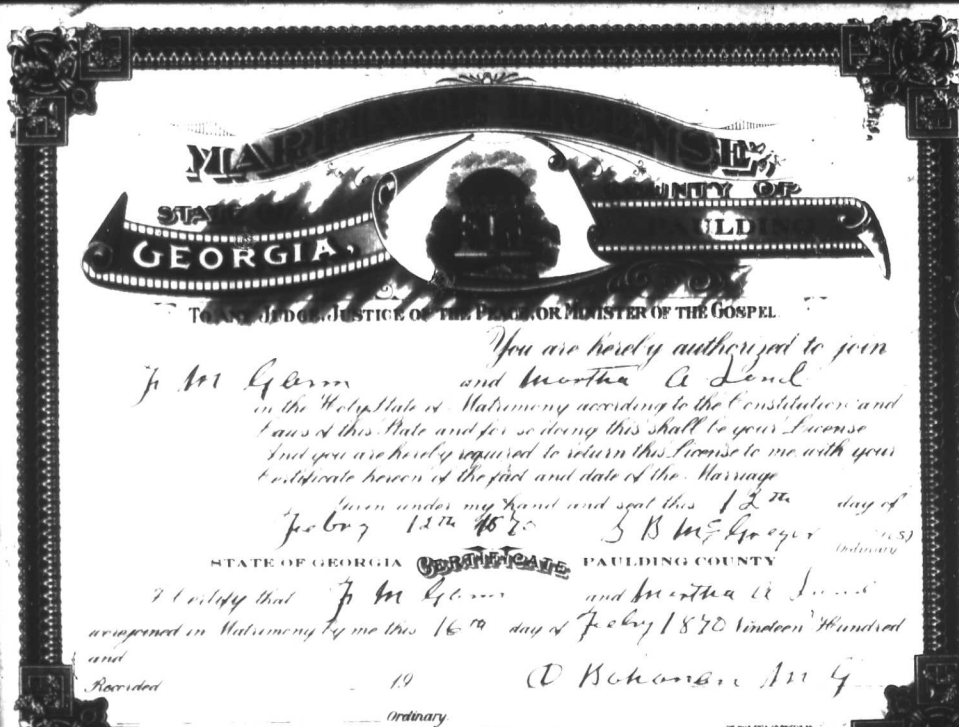 MARRIAGE LICENSE
STATE OF COUNTY OF
GEORGIA, PAULDING
TO ANY JUDGE, JUSTICE OF THE PEACE, OR MINISTER OF THE GOSPEL
You are hereby authorized to join
F M Glenn and Martha A
in the Holy State of Matrimony according to the Constitution and
Laws of this State and for so doing this shall be your License
And you are hereby required to return this License to me with your
Certificate hereon of the fact and date of the Marriage
Given under my hand and seal this 12th day of
Feby 12th 1870 S B McGregor (L.S)
Ordinary
STATE OF GEORGIA CERTIFICATE PAULDING COUNTY
I Certify that F M Glenn and Martha A
were joined in Matrimony by me this 16th day of Feby 1870 Nineteen Hundred
and
Recorded 19 Bohonan M G
Ordinary